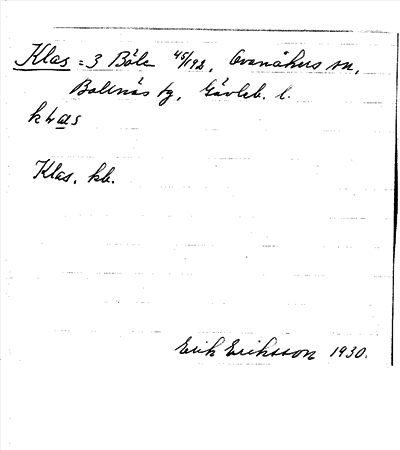 Klas = 3 Böle 45/192, Ovanåkers sn,
Bollnäs tg, Gävleb. l.
Klas, kb.
Erik Eriksson 1930.